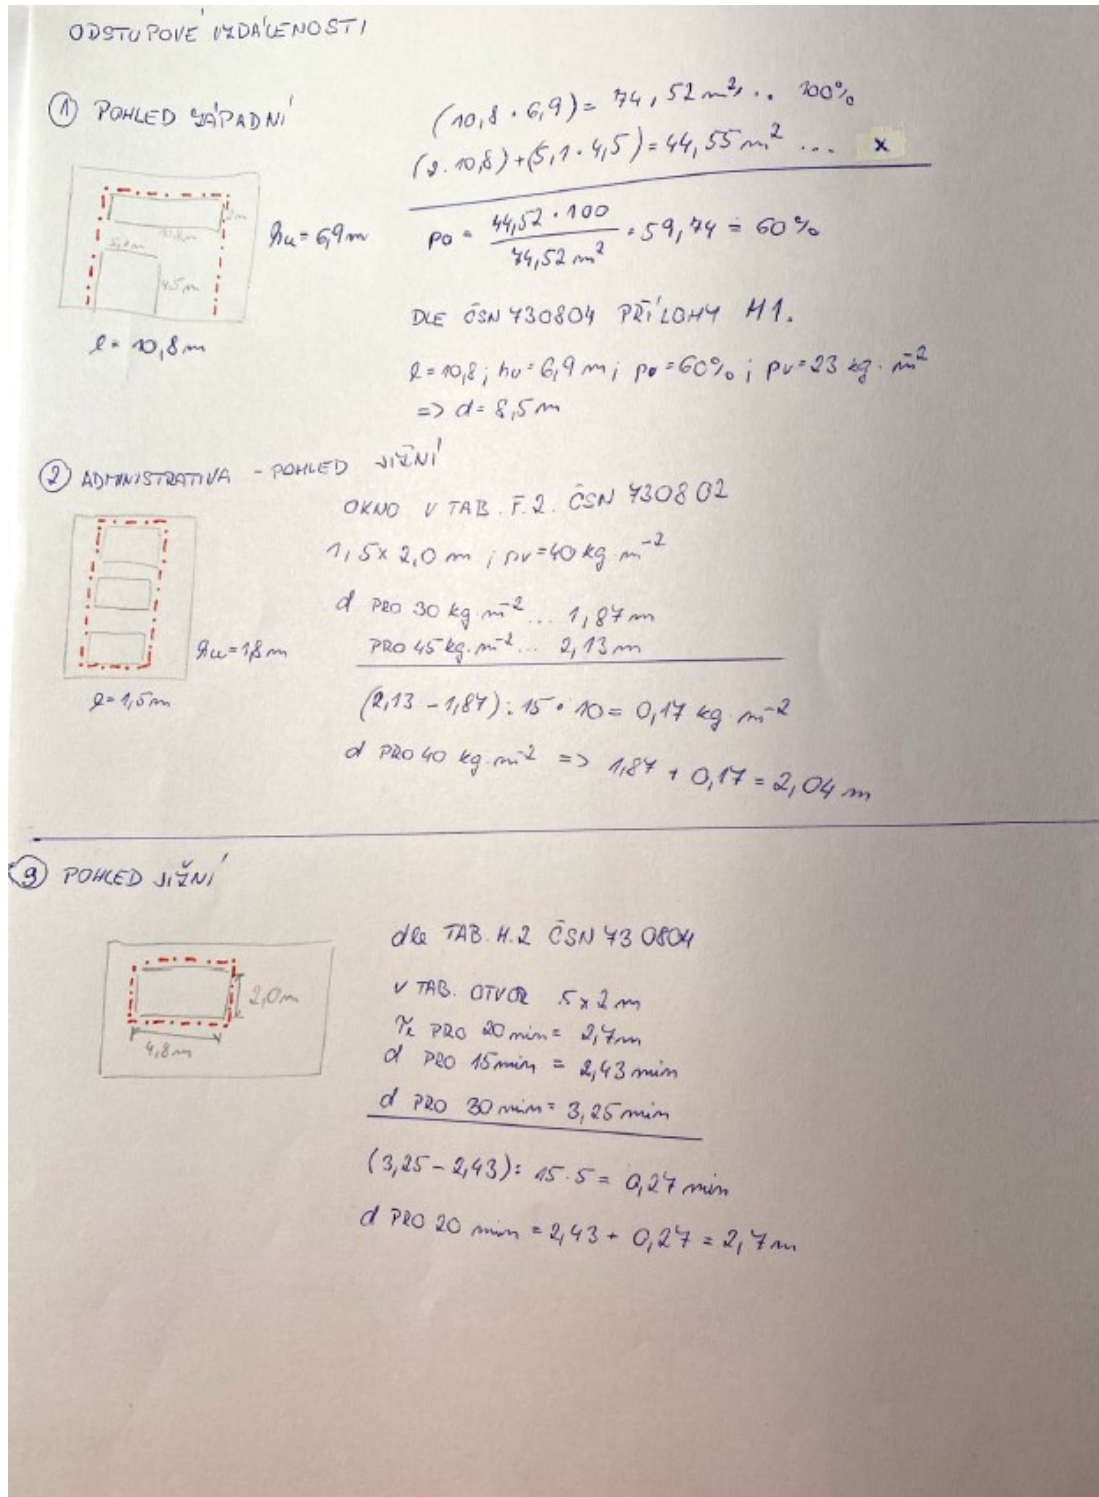 ODSTUPOVÉ VZDÁLENOSTI
① POHLED ZÁPADNÍ
(10,8 · 6,9) = 74,52 m², .. 100%
(2 · 10,8) + (5,1 · 4,5) = 44,55 m² ... x
2m
10,8m
4,5m
hu = 6,9m
l = 10,8m
po = 44,52 · 100 / 74,52 m² = 59,74 = 60%
DLE ČSN 730804 PŘÍLOHY H1.
l = 10,8 ; hu = 6,9 m ; po = 60% ; pv = 23 kg · m⁻²
=> d = 8,5m
② ADMINISTRATIVA - POHLED JIŽNÍ
OKNO V TAB. F.2. ČSN 730802
1,5 x 2,0 m ; pv = 40 kg m⁻²
d PRO 30 kg · m⁻² ... 1,87m
PRO 45 kg · m⁻² ... 2,13m
hu = 1,8m
l = 1,5m
(2,13 - 1,87) : 15 · 10 = 0,17 kg · m⁻²
d PRO 40 kg · m⁻² => 1,87 + 0,17 = 2,04 m
③ POHLED JIŽNÍ
2,0m
4,8m
dle TAB. H.2 ČSN 73 0804
V TAB. OTVOR 5 x 2 m
PRO 20 min = 2,7m
d PRO 15 min = 2,43 min
d PRO 30 min = 3,25 min
(3,25 - 2,43) : 15 · 5 = 0,27 min
d PRO 20 min = 2,43 + 0,27 = 2,7m